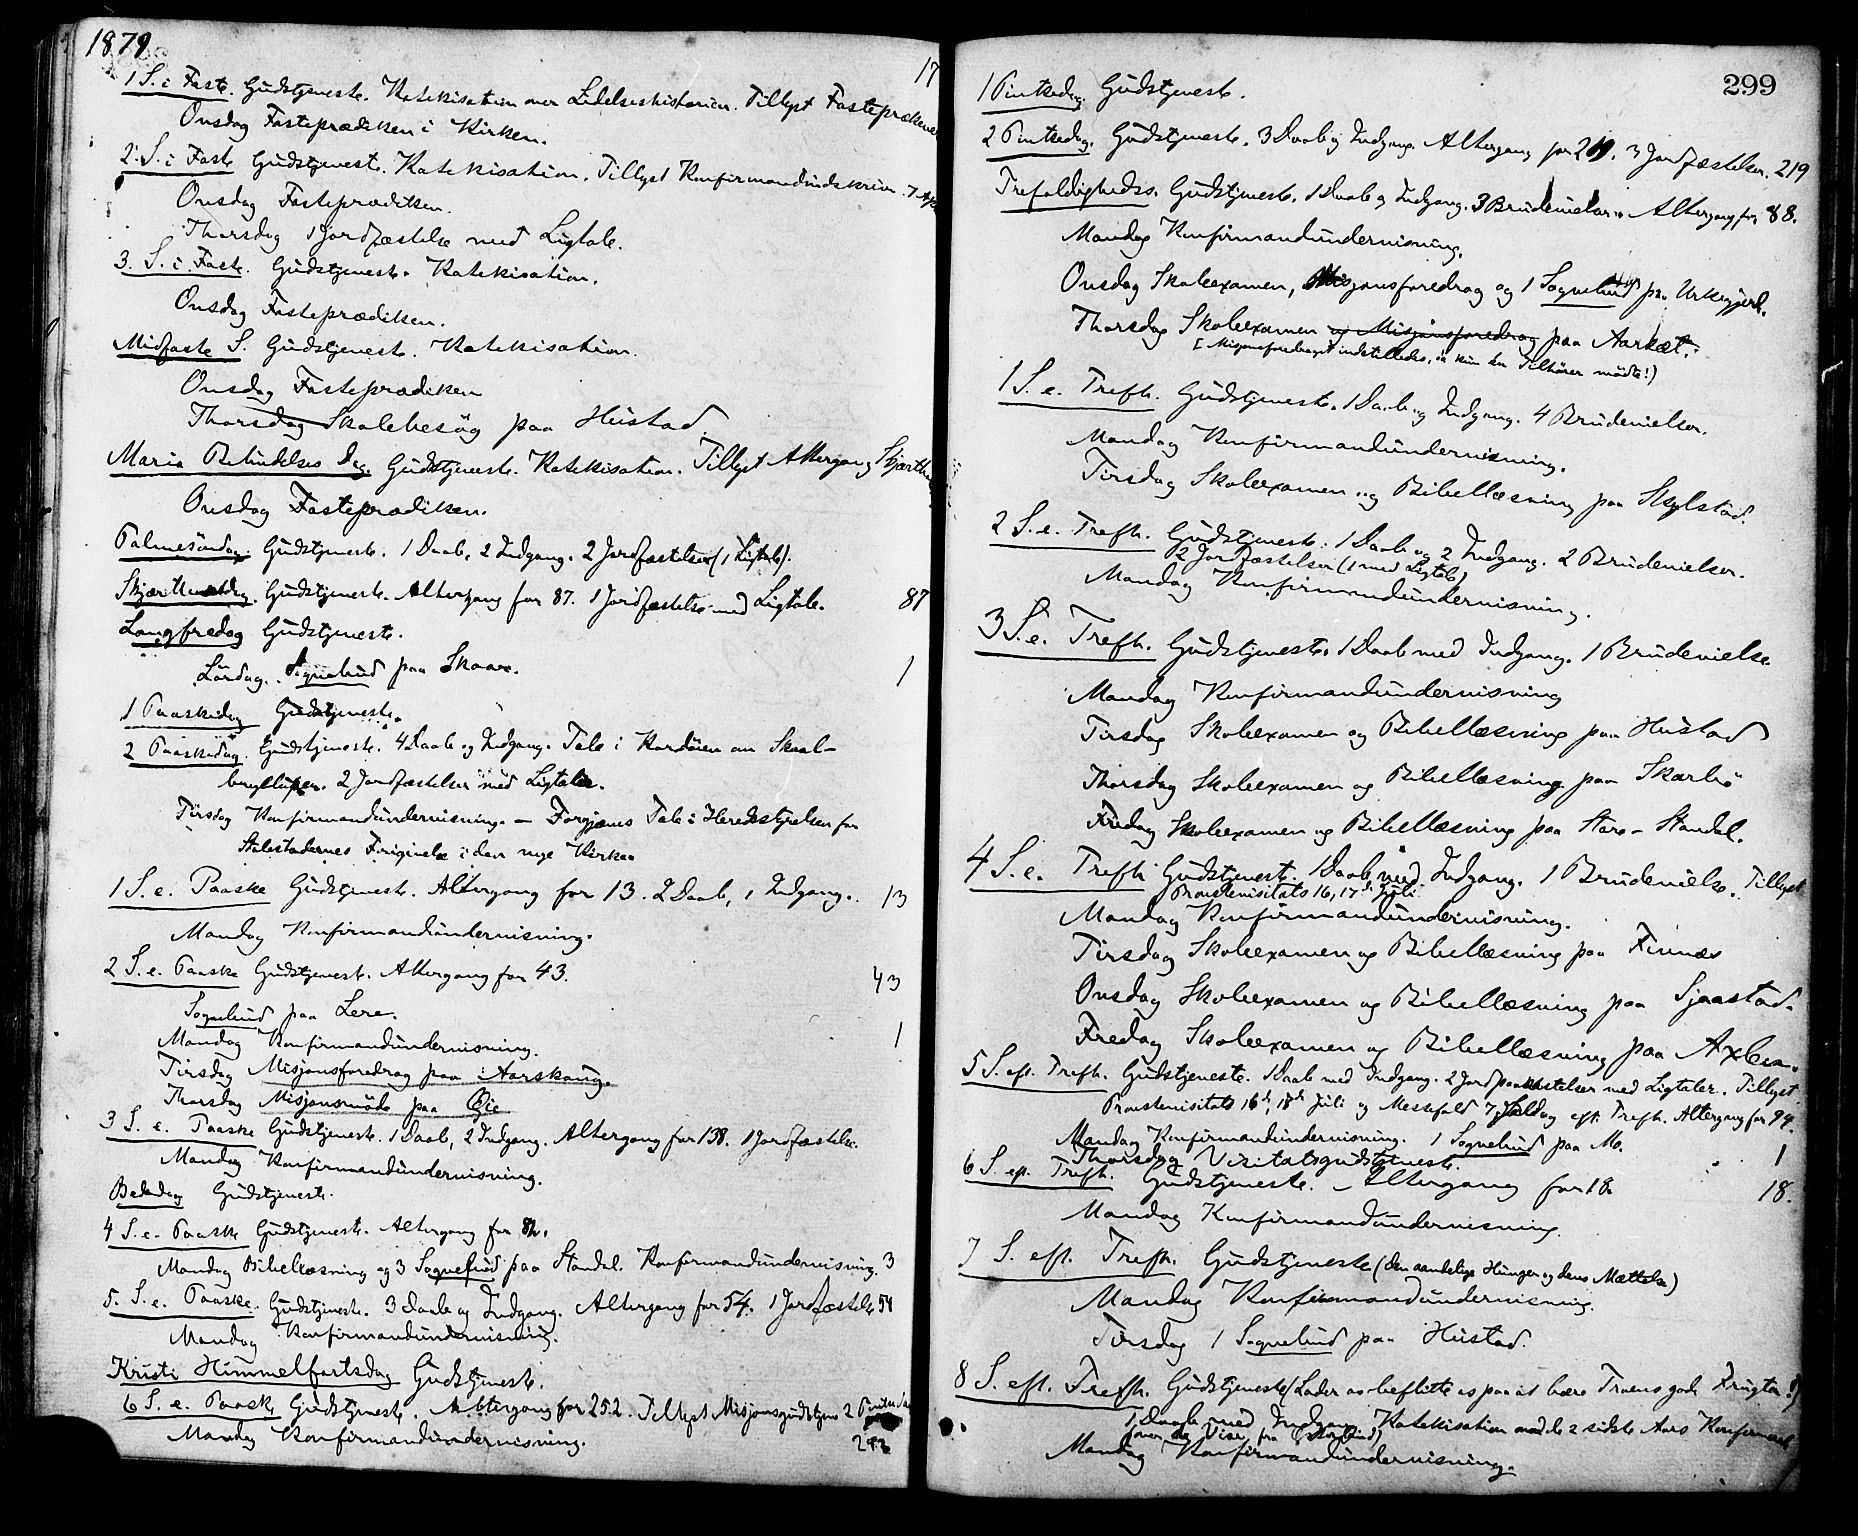 1879
17
1 S. i Faste. Gudstjeneste. Katekisation over Lidelseshistorien. Tillyst Fasteprækener
Onsdag Fasteprædiken i Kirken.
2. S. i Faste Gudstjeneste. Katekisation. Tillyst Konfirmandindskrivn. 7 Apr
Onsdag Fasteprædiken.
Thorsdag 1 Jordfæstelse med Ligtale.
3. S. i Faste. Gudstjeneste. Katekisation.
Onsdag Fasteprædiken.
Midfaste S. Gudstjeneste. Katekisation.
Onsdag Fasteprædiken
Thorsdag Skolebesøg paa Hustad.
Maria Bebudelses Dag. Gudstjeneste. Katekisation. Tillyst Altergang Skjærth
Onsdag Fasteprædiken.
Palmesöndag. Gudstjeneste. 1 Daab, 2 Indgang. 2 Jordfæstelser (1 Ligtale).
Skjærthorsdag. Gudstjeneste. Altergang for 87. 1 Jordfæstelse med Ligtale. 87
Langfredag Gudstjeneste.
Lördag. Sognebud paa Skaare. 1
1 Paaskedag Gudstjeneste.
2 Paaskedag. Gudstjeneste. 4 Daab og Indgang. Tale i Kordören om Skaal-
brylluper. 2 Jordfæstelser med Ligtaler.
Tirsdag Konfirmandundervisning. – Forgjæves Tale i Heredsstyrelsen for
Stolestadernes Frigivelse i den nye Kirke.
1 S. e. Paaske Gudstjeneste. Altergang for 13. 2 Daab, 1 Indgang. 13
Mandag Konfirmandundervisning.
2 S. e. Paaske Gudstjeneste. Altergang for 43. 43
Sognebud paa Lere. 1
Mandag Konfirmandundervisning.
Tirsdag Misjonsforedrag paa Aarskaug.
Thorsdag Misjonsmöde paa Öie
3 S. e. Paaske Gudstjeneste. 1 Daab, 2 Indgang. Altergang for 138. 1 Jordfæstelse.
Mandag Konfirmandundervisning.
Bededag Gudstjeneste.
4 S. e. Paaske Gudstjeneste. Altergang for 82.
Mandag Bibellæsning og 3 Sognebud paa Standal. Konfirmandundervisning. 3
5. S. e. Paaske. Gudstjeneste. 3 Daab og Indgang. Altergang for 54. 1 Jordfæstelse 54
Mandag Konfirmandundervisning.
Kristi Himmelfartsdag Gudstjeneste.
6 S. e. Paaske Gudstjeneste. Altergang for 252. Tillyst Misjonsgudstjens 2 Pintsedag
Mandag Konfirmandundervisning.
299
1 Pintsedag. Gudstjeneste.
2 Pintsedag. Gudstjeneste. 3 Daab og Indgang. Altergang for 219. 3 Jordfæstelser. 219
Trefoldighedss. Gudstjeneste. 1 Daab og Indgang. 3 Brudevielser. Altergang for 88.
Mandag Konfirmandundervisning.
Onsdag Skoleexamen, Misjonsforedrag og 1 Sognebud paa Urkegjerd.
Thorsdag Skoleexamen og Misjonsforedrag paa Aarset.
(Misjonsforedraget indstilledes, da kun en Tilhörer mödte!)
1 S. e. Trefh. Gudstjeneste. 1 Daab og Indgang. 4 Brudevielser.
Mandag Konfirmandundervisning.
Tirsdag Skoleexamen og Bibellæsning paa Skylstad.
2 S. e. Trefh. Gudstjeneste. 1 Daab og 2 Indgang. 2 Brudevielser.
2 Jordfæstelser (1 med Ligtale)
Mandag Konfirmandundervisning.
3 S. e. Trefh. Gudstjeneste. 1 Daab med Indgang. 1 Brudevielse.
Mandag Konfirmandundervisning
Tirsdag Skoleexamen og Bibellæsning paa Hustad
Thorsdag Skoleexamen og Bibellæsning paa Skarbö
Fredag Skoleexamen og Bibellæsning paa Store-Standal.
4 S. e. Trefh Gudstjeneste. 1 Daab med Indgang. 1 Brudevielse. Tillyst
Provstevisitats 16, 17de Juli
Mandag Konfirmandundervisning.
Tirsdag Skoleexamen og Bibellæsning paa Finnæs
Onsdag Skoleexamen og Bibellæsning paa Sjaastad.
Fredag Skoleexamen og Bibellæsning paa Axlen.
5 S. eft. Trefh. Gudstjeneste. 1 Daab med Indgang. 2 Jordpaakastelser med Ligtaler. Tillyst
Provstevisitats 16d, 18de Juli og Messefald 7 Söndag eft. Trefh. Altergang for 94.
Mandag Konfirmandundervisning. 1 Sognebud paa Mo. 1
Thorsdag Visitatsgudstjeneste.
6 S. ef. Trefh. Gudstjeneste. – Altergang for 18. 18.
Mandag Konfirmandundervisning.
7 S. eft. Trefh. Gudstjeneste (Den aandelige Hunger og dens Mættelse)
Mandag Konfirmandundervisning.
Tirsdag 1 Sognebud paa Hustad.
8 S. eft. Trefh. Gudstjeneste (Lader os beflitte os paa at bære Troens gode Frugter!)
1 Daab med Indgang. Katekisation med de 2 sidste Aars Konfirmerede
Mandag Konfirmandundervisning.